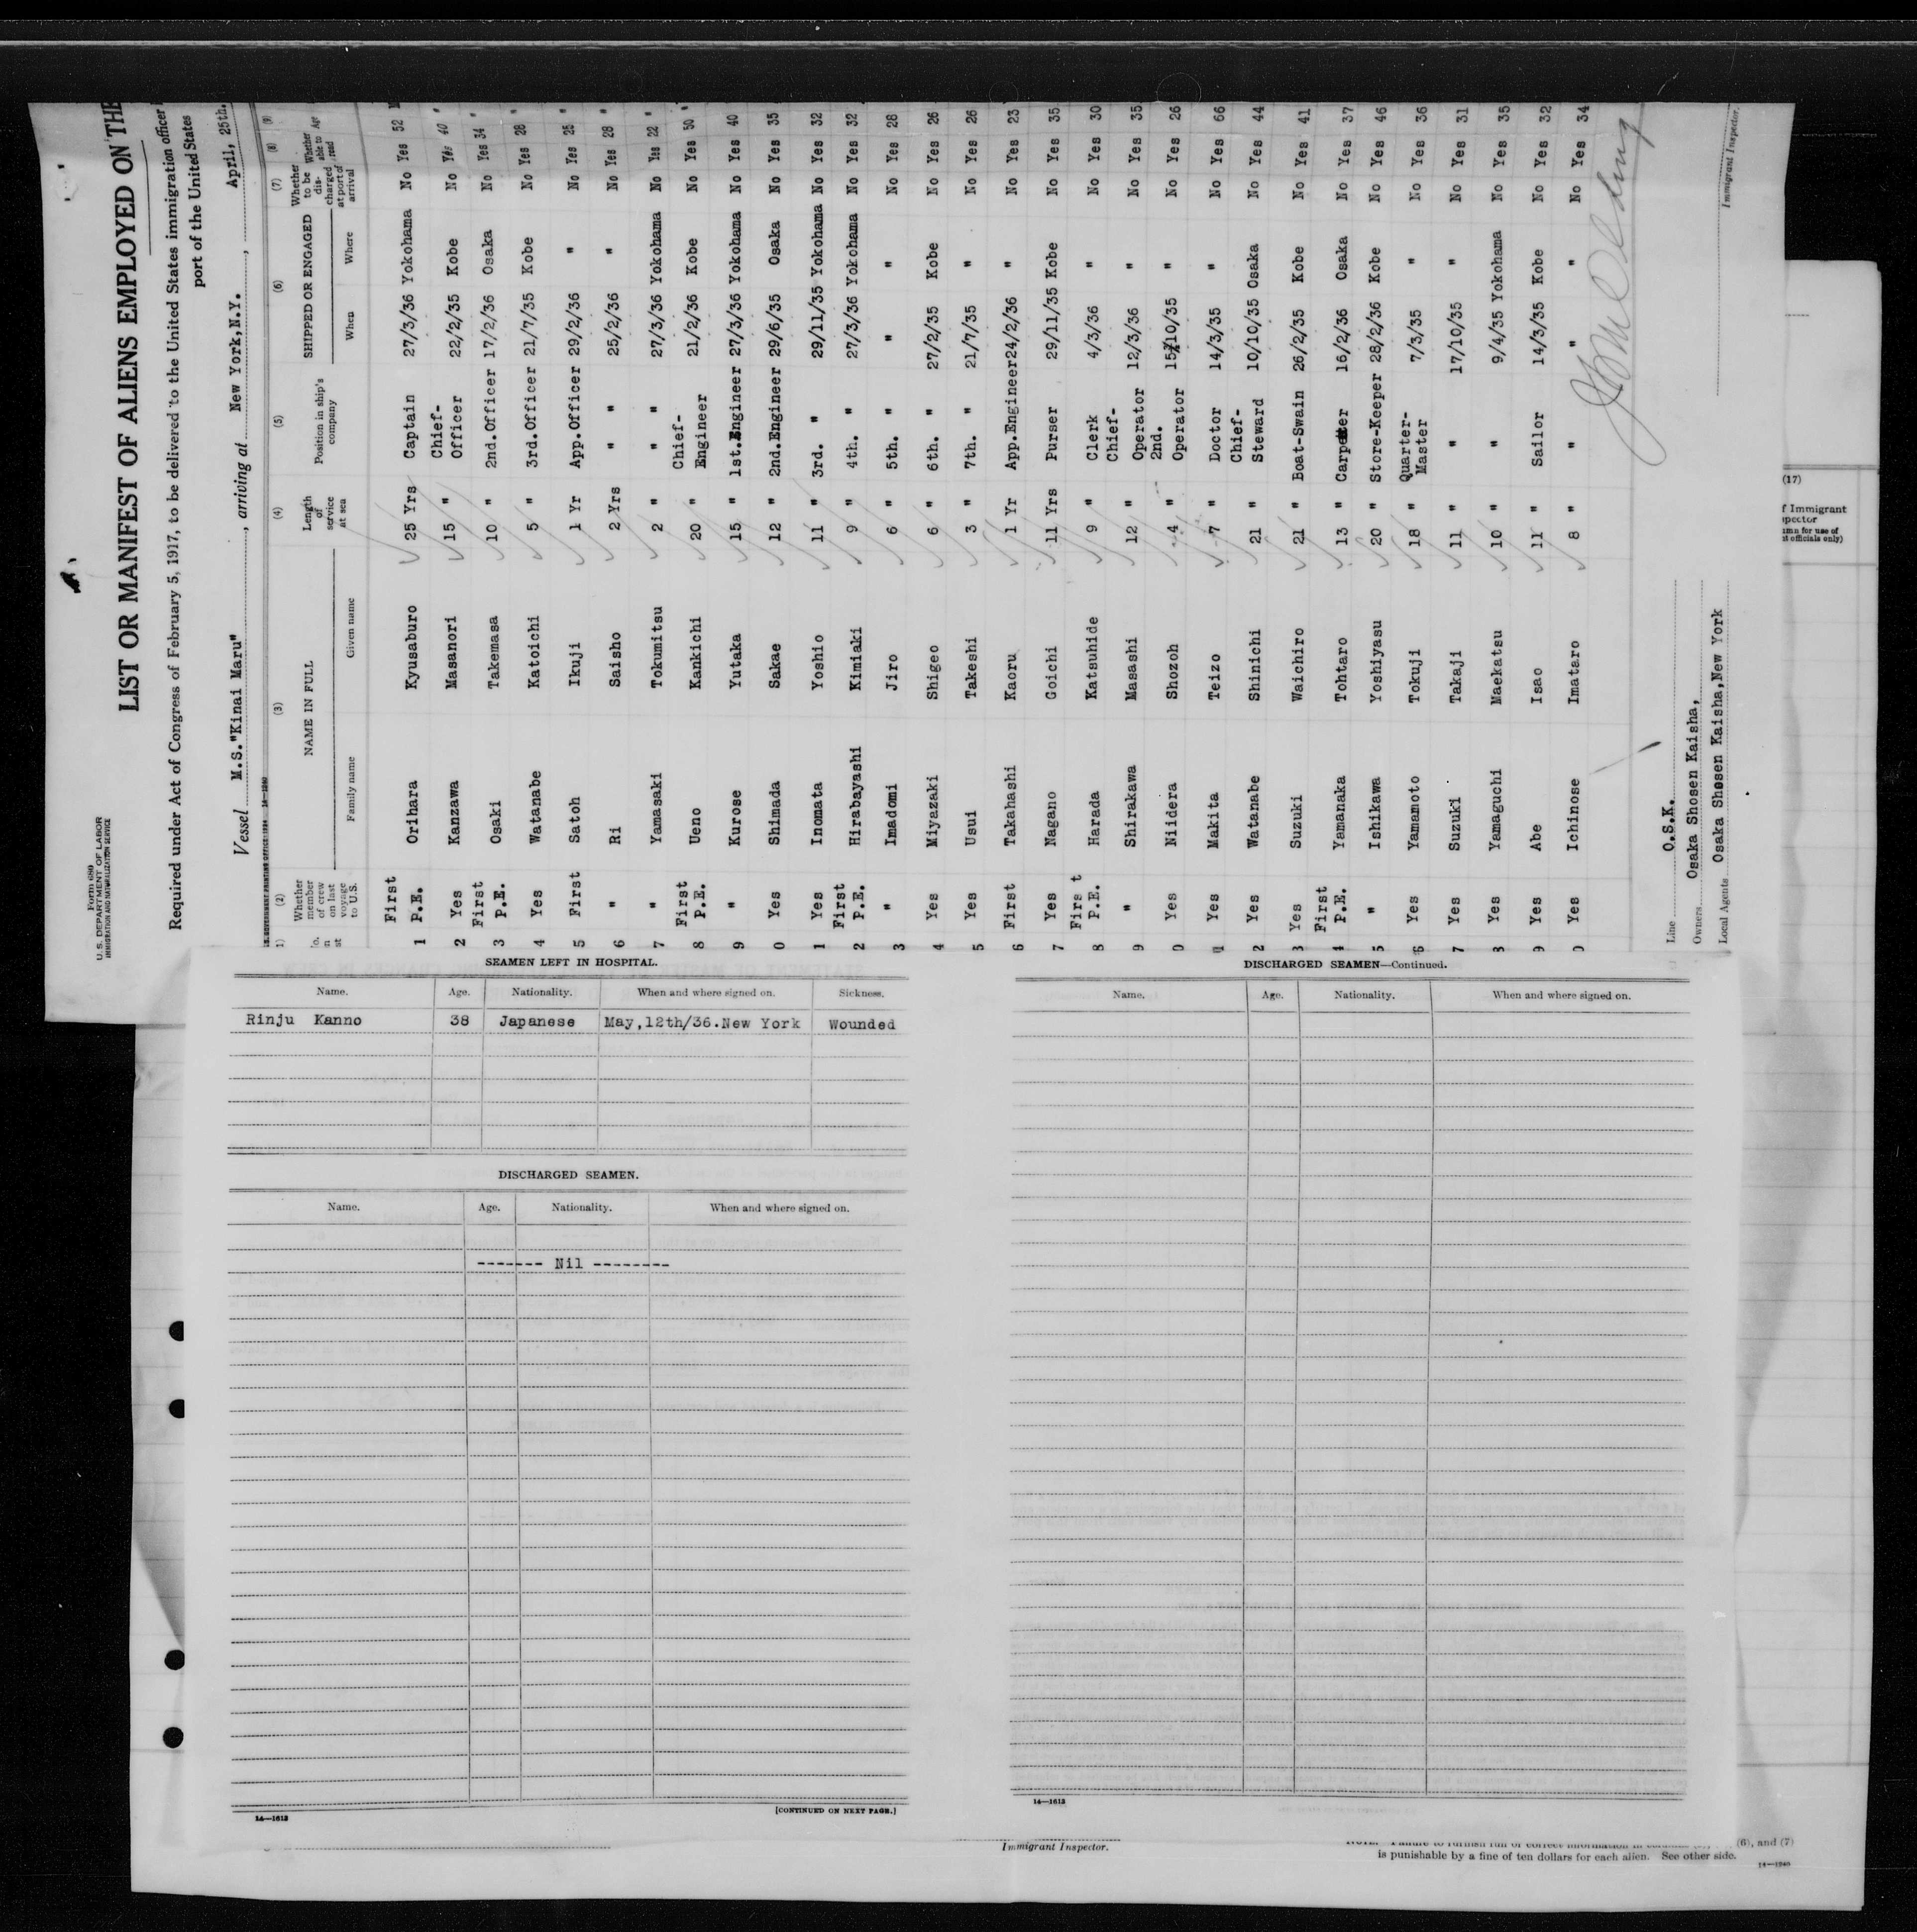 Form 680
U. S. DEPARTMENT OF LABOR
IMMIGRATION AND NATURALIZATION SERVICE
LIST OR MANIFEST OF ALIENS EMPLOYED ON THE
Required under Act of Congress of February 5, 1917, to be delivered to the United States immigration officer
port of the United States
Vessel M.S."Kinai Maru", arriving at New York,N.Y., April, 25th.
(2) (3) (4) (5) (6) (7) (8) (9)
Whether member of crew on last voyage to U.S. NAME IN FULL Family name Given name Length of service at sea Position in ship's company SHIPPED OR ENGAGED When Where Whether to be discharged at port of arrival Whether able to read Age
1 First P.E. Orihara Kyusaburo 25 Yrs Captain 27/3/36 Yokohama No Yes 52
2 Yes Kanzawa Masanori 15 " Chief-Officer 22/2/35 Kobe No Yes 40 "
3 First P.E. Osaki Takemasa 10 " 2nd.Officer 17/2/36 Osaka No Yes 34 "
4 Yes Watanabe Katoichi 5 " 3rd.Officer 21/7/35 Kobe No Yes 28 "
5 First Satoh Ikuji 1 Yr App.Officer 29/2/36 " No Yes 25 "
6 " Ri Saisho 2 Yrs " " 25/2/36 " No Yes 29 "
7 " Yamasaki Tokumitsu 2 " " " 27/3/36 Yokohama No Yes 22 "
8 First P.E. Ueno Kankichi 20 " Chief-Engineer 21/2/36 Kobe No Yes 50 "
9 " Kurose Yutaka 15 " 1st.Engineer 27/3/36 Yokohama No Yes 40
0 Yes Shimada Sakae 12 " 2nd.Engineer 29/6/35 Osaka No Yes 35
1 Yes Inomata Yoshio 11 " 3rd. " 29/11/35 Yokohama No Yes 32
2 First P.E. Hirabayashi Kimiaki 9 " 4th. " 27/3/36 Yokohama No Yes 32
3 " Imadomi Jiro 6 " 5th. " " " No Yes 28
4 Yes Miyazaki Shigeo 6 " 6th. " 27/2/35 Kobe No Yes 26
5 Yes Usui Takeshi 3 " 7th. " 21/7/35 " No Yes 26
6 First Takahashi Kaoru 1 Yr App.Engineer 24/2/36 " No Yes 23
7 Yes Nagano Goichi 11 Yrs Purser 29/11/35 Kobe No Yes 35
8 First P.E. Harada Katsuhide 9 " Clerk 4/3/36 " No Yes 30
9 " Shirakawa Masashi 12 " Chief-Operator 12/3/36 " No Yes 35
0 Yes Niidera Shozoh 4 " 2nd. Operator 15/10/35 " No Yes 26
1 Yes Makita Teizo 7 " Doctor 14/3/35 " No Yes 66
2 Yes Watanabe Shinichi 21 " Chief-Steward 10/10/35 Osaka No Yes 44
3 Yes Suzuki Waichiro 21 " Boat-Swain 26/2/35 Kobe No Yes 41
4 First P.E. Yamanaka Tohtaro 13 " Carpenter 16/2/36 Osaka No Yes 37
5 " Ishikawa Yoshiyasu 20 " Store-Keeper 28/2/36 Kobe No Yes 46
6 Yes Yamamoto Tokuji 18 " Quarter-Master 7/3/35 " No Yes 36
7 Yes Suzuki Takaji 11 " " 17/10/35 " No Yes 31
8 Yes Yamaguchi Maekatsu 10 " " 9/4/35 Yokohama No Yes 35
9 Yes Abe Isao 11 " Sailor 14/3/35 Kobe No Yes 32
0 Yes Ichinose Imataro 8 " " " " No Yes 34
Line O.S.K.
Owners Osaka Shosen Kaisha,
Local Agents Osaka Shosen Kaisha,New York
Immigrant Inspector.
SEAMEN LEFT IN HOSPITAL.
Name. Age. Nationality. When and where signed on. Sickness.
Rinju Kanno 38 Japanese May,12th/36.New York Wounded
DISCHARGED SEAMEN.
Name. Age. Nationality. When and where signed on.
------- Nil --------
14—1613
[CONTINUED ON NEXT PAGE.]
DISCHARGED SEAMEN—Continued.
Name. Age. Nationality. When and where signed on.
14—1613
(17)
f Immigrant
officials only)
Immigrant Inspector.
(6), and (7)
is punishable by a fine of ten dollars for each alien. See other side.